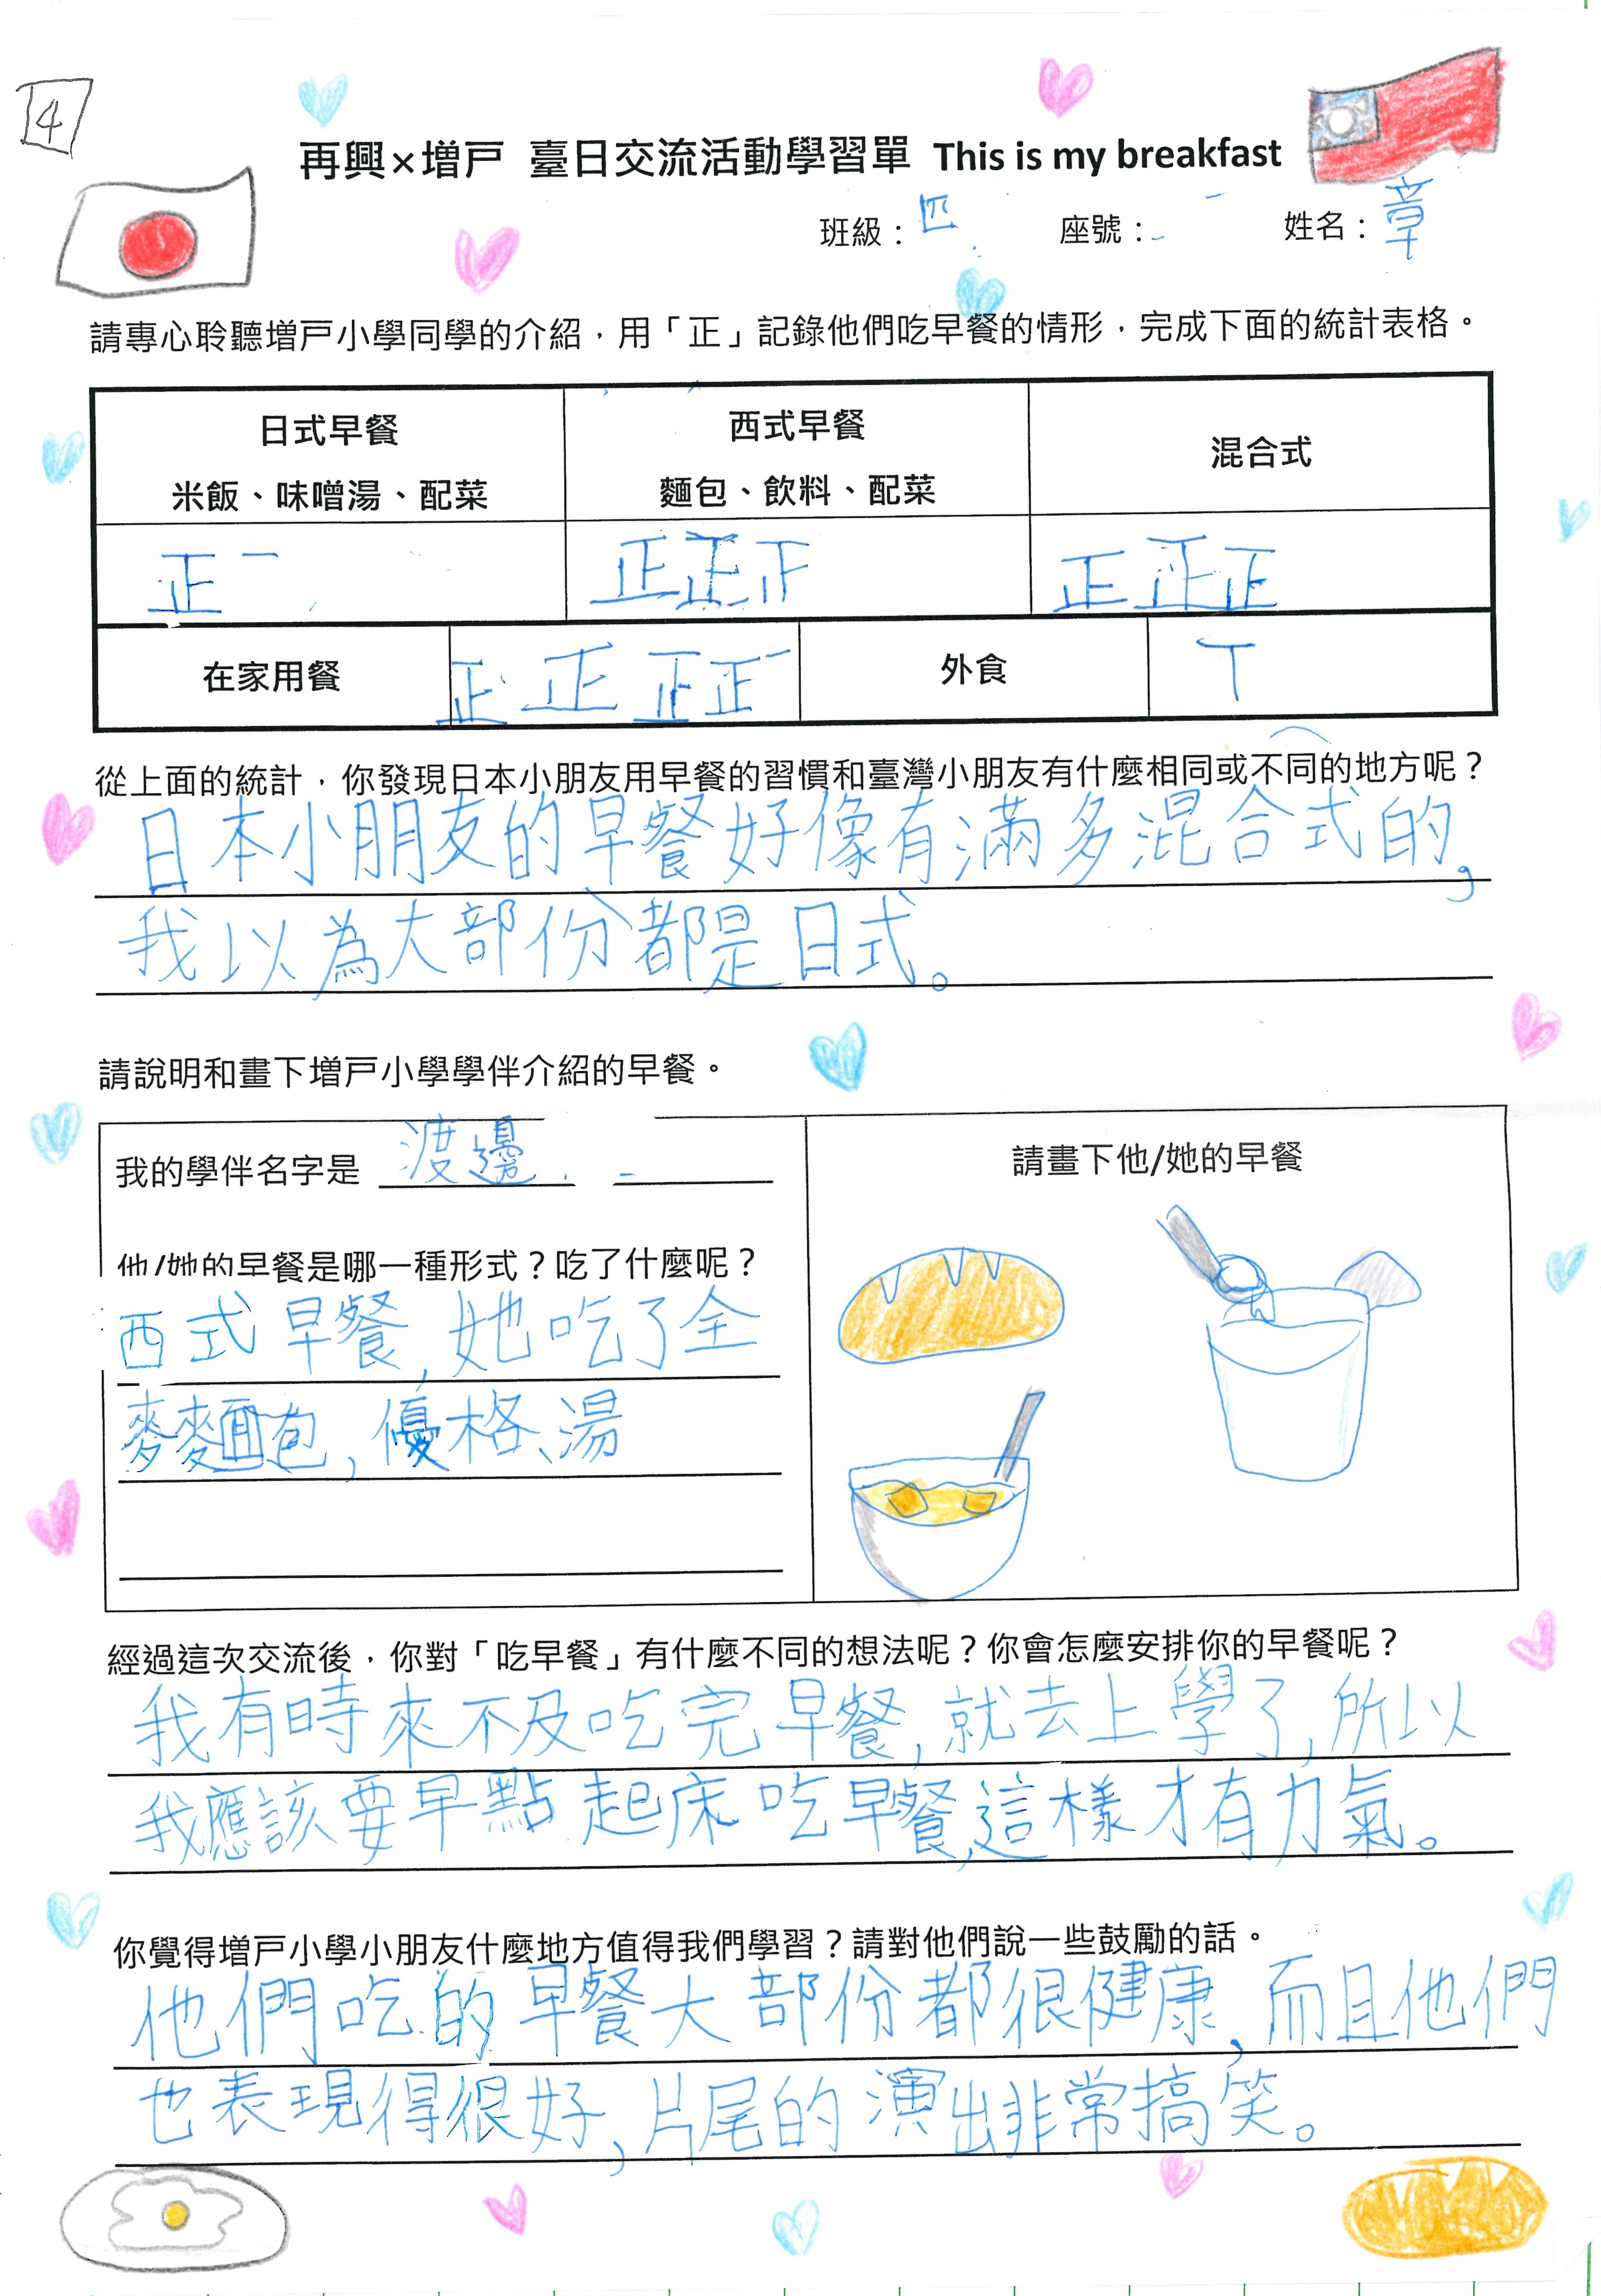 4
再興×增戸 臺日交流活動學習單 This is my breakfast
班級：四 座號： 姓名：章
請專心聆聽增戸小學同學的介紹，用「正」記錄他們吃早餐的情形，完成下面的統計表格。
日式早餐 西式早餐 混合式
米飯、味噌湯、配菜 麵包、飲料、配菜
正一 正正 正正正
在家用餐 正正正正一 外食 丅
從上面的統計，你發現日本小朋友用早餐的習慣和臺灣小朋友有什麼相同或不同的地方呢？
日本小朋友的早餐好像有滿多混合式的，
我以為大部份都是日式。
請說明和畫下增戸小學學伴介紹的早餐。
我的學伴名字是 渡邊
請畫下他/她的早餐
他/她的早餐是哪一種形式？吃了什麼呢？
西式早餐，她吃了全
麥麵包，優格、湯
經過這次交流後，你對「吃早餐」有什麼不同的想法呢？你會怎麼安排你的早餐呢？
我有時來不及吃完早餐，就去上學了，所以
我應該要早點起床吃早餐，這樣才有力氣。
你覺得增戸小學小朋友什麼地方值得我們學習？請對他們說一些鼓勵的話。
他們吃的早餐大部份都很健康，而且他們
也表現得很好，片尾的演出非常搞笑。